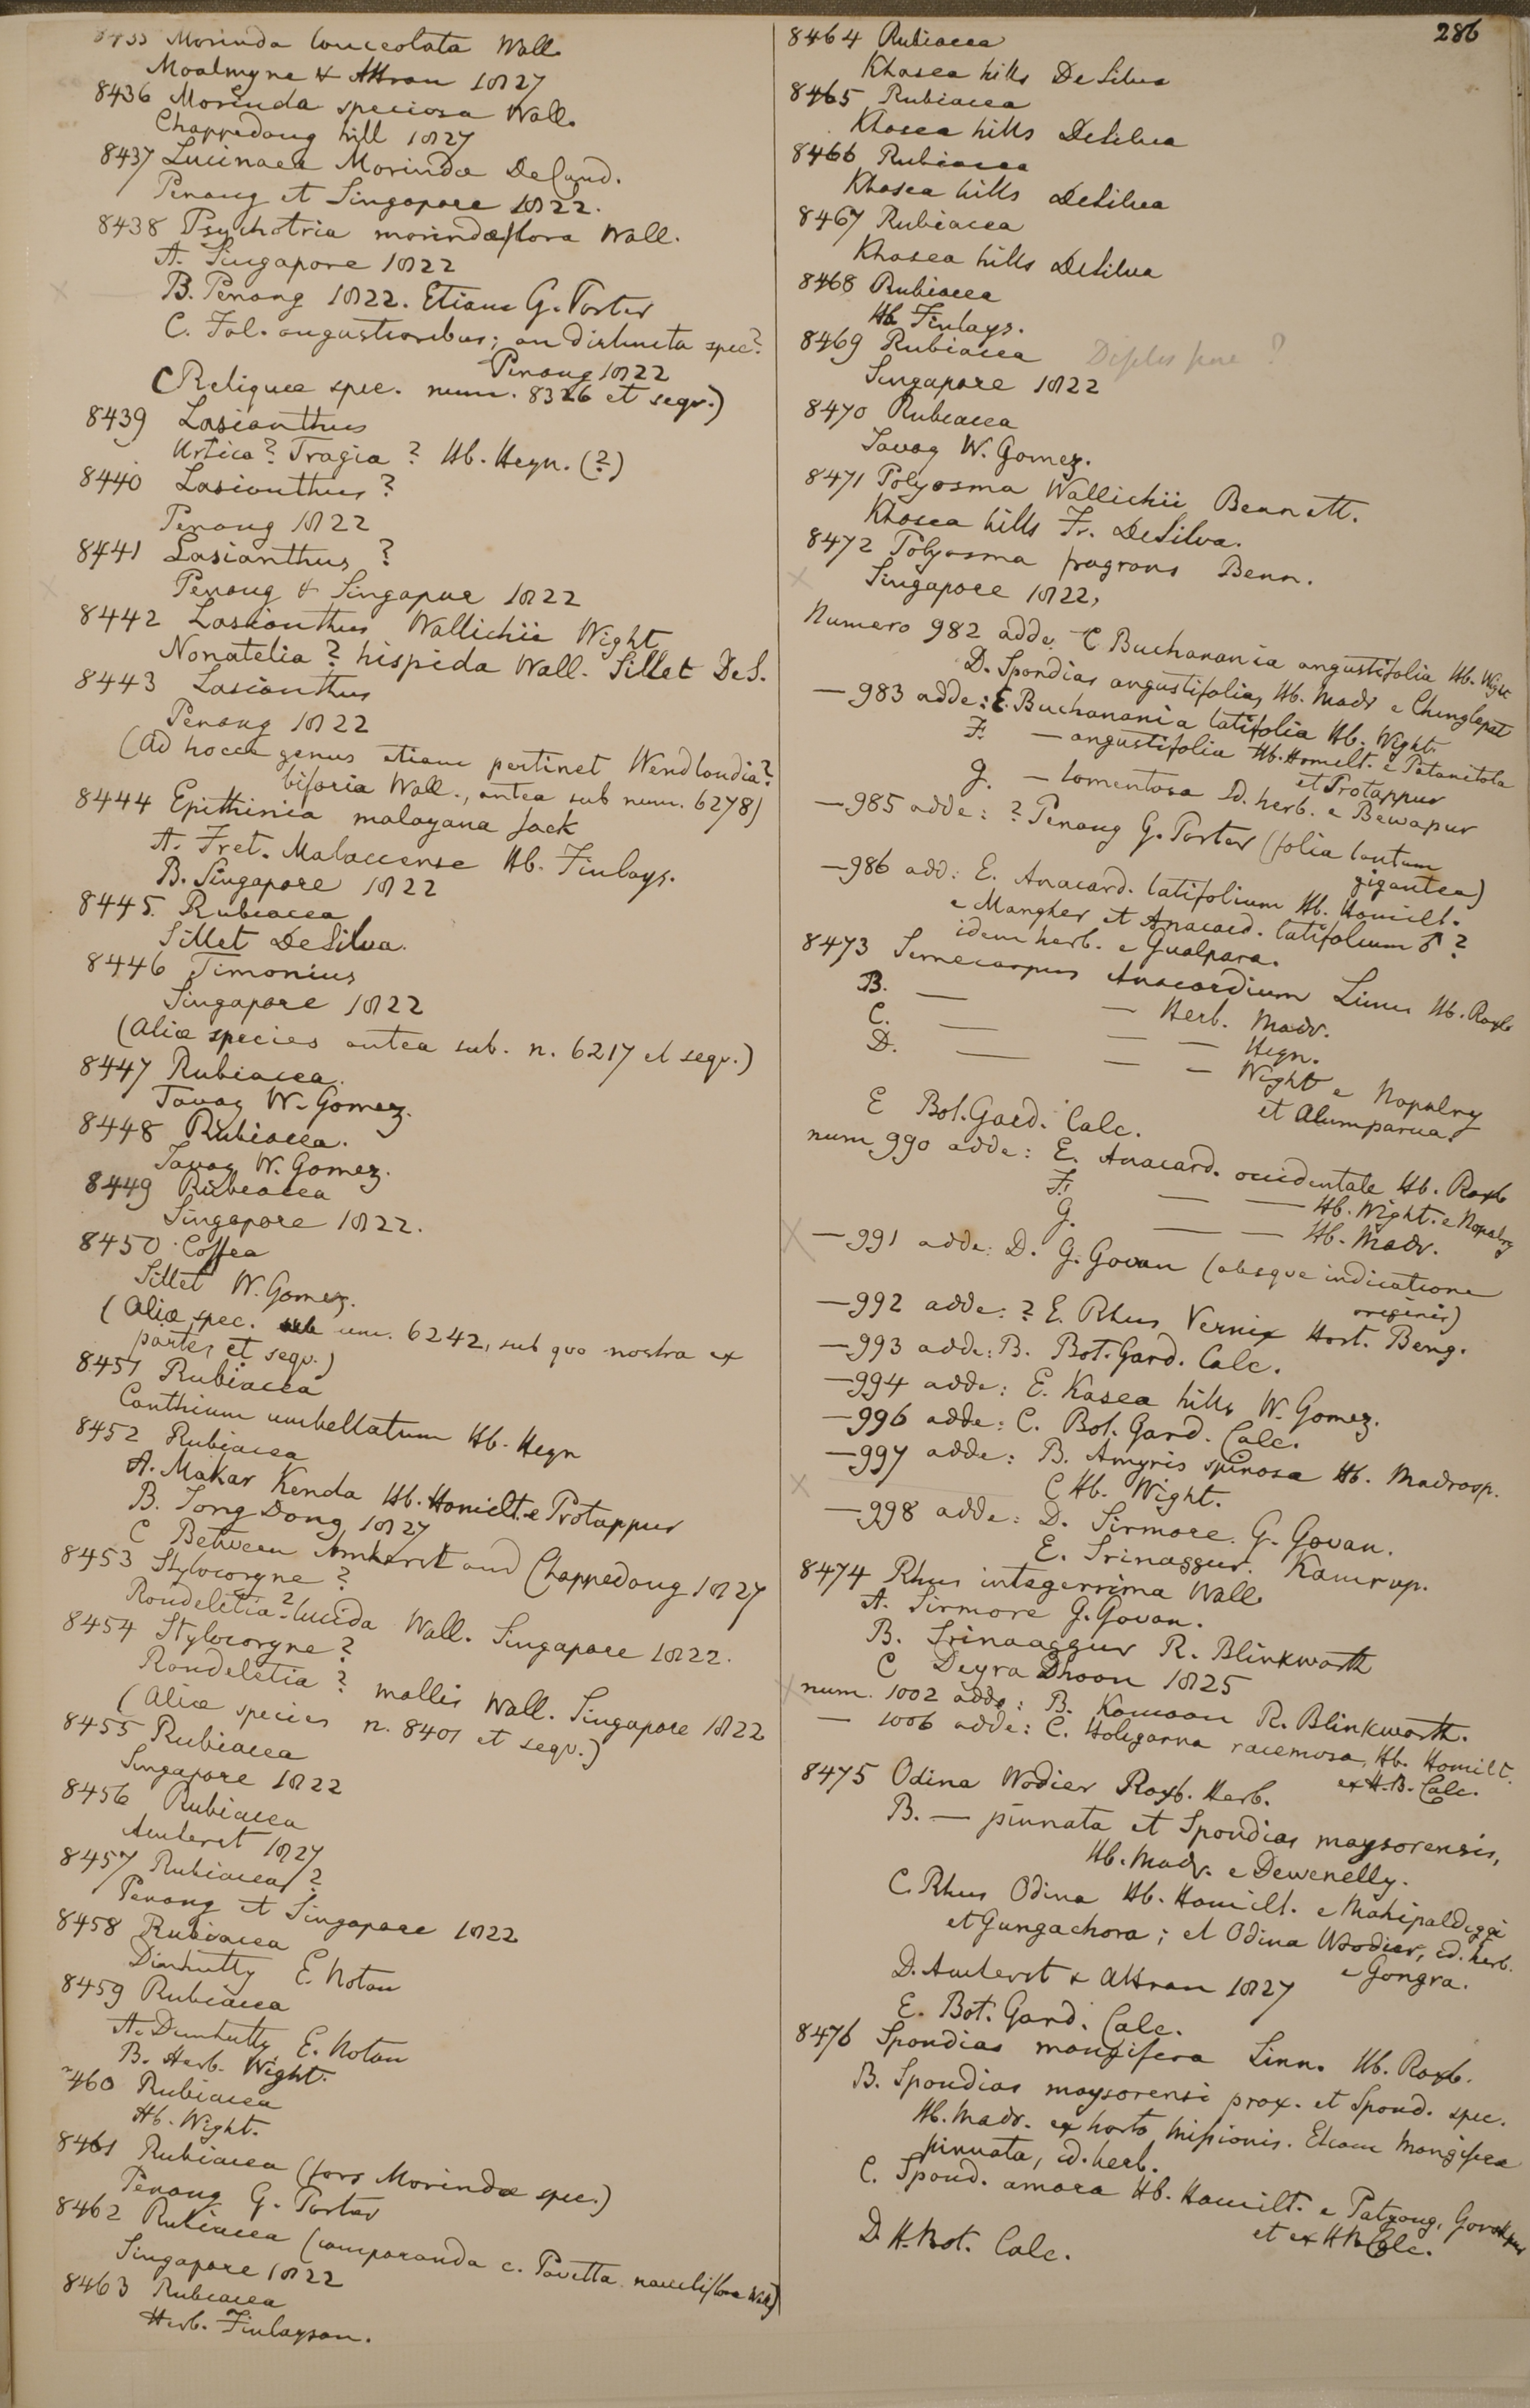 8435 Morinda lanceolata Wall.
Moalmyne & Attran 1827
8436 Morinda speciosa Wall.
Chappedong hill 1827
8437 Lucinaea Morinda DeCand.
Penang et Singapore 1822.
8438 Psychotria morindæflora Wall.
A. Singapore 1822
B. Penang 1822. Etiam G. Porter
C. Fol. angustioribus; an distincta spec?
Penang 1822
(Reliquæ spec. num. 8326 et seqv.)
8439 Lasianthus
Urtica? Tragia? Hb. Heyn. (?)
8440 Lasianthus?
Penang 1822
8441 Lasianthus?
Penang & Singapur 1822
8442 Lasianthus Wallichii Wight
Nonatelia? hispida Wall. Sillet DeS.
8443 Lasianthus
Penang 1822
(Ad hocce genus etiam pertinet Wendlandia?
biforia Wall., antea sub num. 6278)
8444 Epithinia malayana Jack
A. Fret. Malaccense Hb. Finlays.
B. Singapore 1822
8445. Rubiacea
Sillet DeSilva.
8446 Timonius
Singapore 1822
(Aliæ species antea sub. n. 6217 et seqv.)
8447 Rubiacea.
Tavoy W. Gomez.
8448 Rubiacea.
Tavoy W. Gomez.
8449 Rubiacea
Singapore 1822.
8450 Coffea
Sillet W. Gomez.
(Aliæ spec. num. 6242, sub quo nostra ex
parte, et seqv.)
8451 Rubiacea
Canthium umbellatum Hb. Heyn
8452 Rubiacea
A. Makar Kenda Hb. Hamilt. e Protappur
B. Tong Dong 1827
C Between Amherst and Chappedong 1827
8453 Stylocoryne?
Rondeletia? lucida Wall. Singapore 1822.
8454 Stylocoryne?
Rondeletia? mollis Wall. Singapore 1822
(Aliæ species n. 8401 et seqv.)
8455 Rubiacea
Singapore 1822
8456 Rubiacea
Amherst 1827
8457 Rubiacea?
Penang et Singapore 1822
8458 Rubiacea
Dimhutty E. Noton
8459 Rubiacea
A. Dimhutty E. Noton
B. Herb. Wight.
8460 Rubiacea
Hb. Wight.
8461 Rubiacea (fors Morindæ spec.)
Penang G. Porter
8462 Rubiacea (comparanda c. Pavetta naucleiflora Wall)
Singapore 1822
8463 Rubiacea
Herb. Finlayson.
286
8464 Rubiacea
Khasea hills DeSilva
8465 Rubiacea
Khasea hills DeSilva
8466 Rubiacea
Khasea hills DeSilva
8467 Rubiacea
Khasea hills DeSilva
8468 Rubiacea
Hb. Finlays.
8469 Rubiacea
Singapore 1822
8470 Rubiacea
Tavoy W. Gomez.
8471 Polyosma Wallichii Bennett.
Khasea hills Fr. DeSilva.
8472 Polyosma fragrans Benn.
Singapore 1822,
Numero 982 adde C Buchanania angustifolia Hb. Wight
D. Spondias angustifolia, Hb. Madr e Chinglepat
— 983 adde: E. Buchanania latifolia Hb. Wight.
F. — angustifolia Hb. Hamilt. e Patanitola
et Protappur
G. — tomentosa Id. herb. e Bewapur
— 985 adde: ? Penang G. Porter (folia tantum
gigantea)
— 986 add: E. Anacard. latifolium Hb. Hamilt.
e Mangher et Anacard. latifolium ♂?
idem herb. e Gualpara.
8473 Semecarpus Anacardium Linn Hb. Roxb
B. — — Herb. Madr.
C. — — — Heyn.
D. — — — Wight e Nopalry
et Alumparva.
E Bot. Gard. Calc.
num 990 adde: E. Anacard. occidentale Hb. Roxb
F. — — Hb. Wight. e Nopalry
G. — — Hb. Madr.
— 991 adde: D. G. Govan (absque indicatione
originis)
— 992 adde: ? E. Rhus Vernix Hort. Beng.
— 993 adde: B. Bot. Gard. Calc.
— 994 adde: E. Kasea hills W. Gomez.
— 996 adde: C. Bot. Gard. Calc.
— 997 adde: B. Amyris spinosa Hb. Madrasp.
C Hb. Wight.
— 998 adde: D. Sirmore G. Govan.
E. Srinaggur. Kamrup.
8474 Rhus integerrima Wall.
A. Sirmore G. Govan.
B. Srinaaggur R. Blinkworth
C Deyra Dhoon 1825
num. 1002 adde: B. Kamaon R. Blinkworth.
— 1006 adde: C. Holigarna racemosa, Hb. Hamilt.
ex H. B. Calc.
8475 Odina Wodier Roxb. Herb.
B. — pinnata et Spondias maysorensis,
Hb. Madr. e Dewenelly.
C. Rhus Odina Hb. Hamilt. e Mahipaldiggi
et Gungachora; et Odina Woodier, id. herb.
e Gongra.
D. Amherst & Attran 1827
E. Bot. Gard. Calc.
8476 Spondias mangifera Linn. Hb. Roxb.
B. Spondias maysorensi prox. et Spond. spec.
Hb. Madr. ex horto Missionis. Etiam Mangifera
pinnata, id. herb.
C. Spond. amara Hb. Hamilt. e Patgong, Gorakpur
et ex H B Calc.
D. H. Bot. Calc.